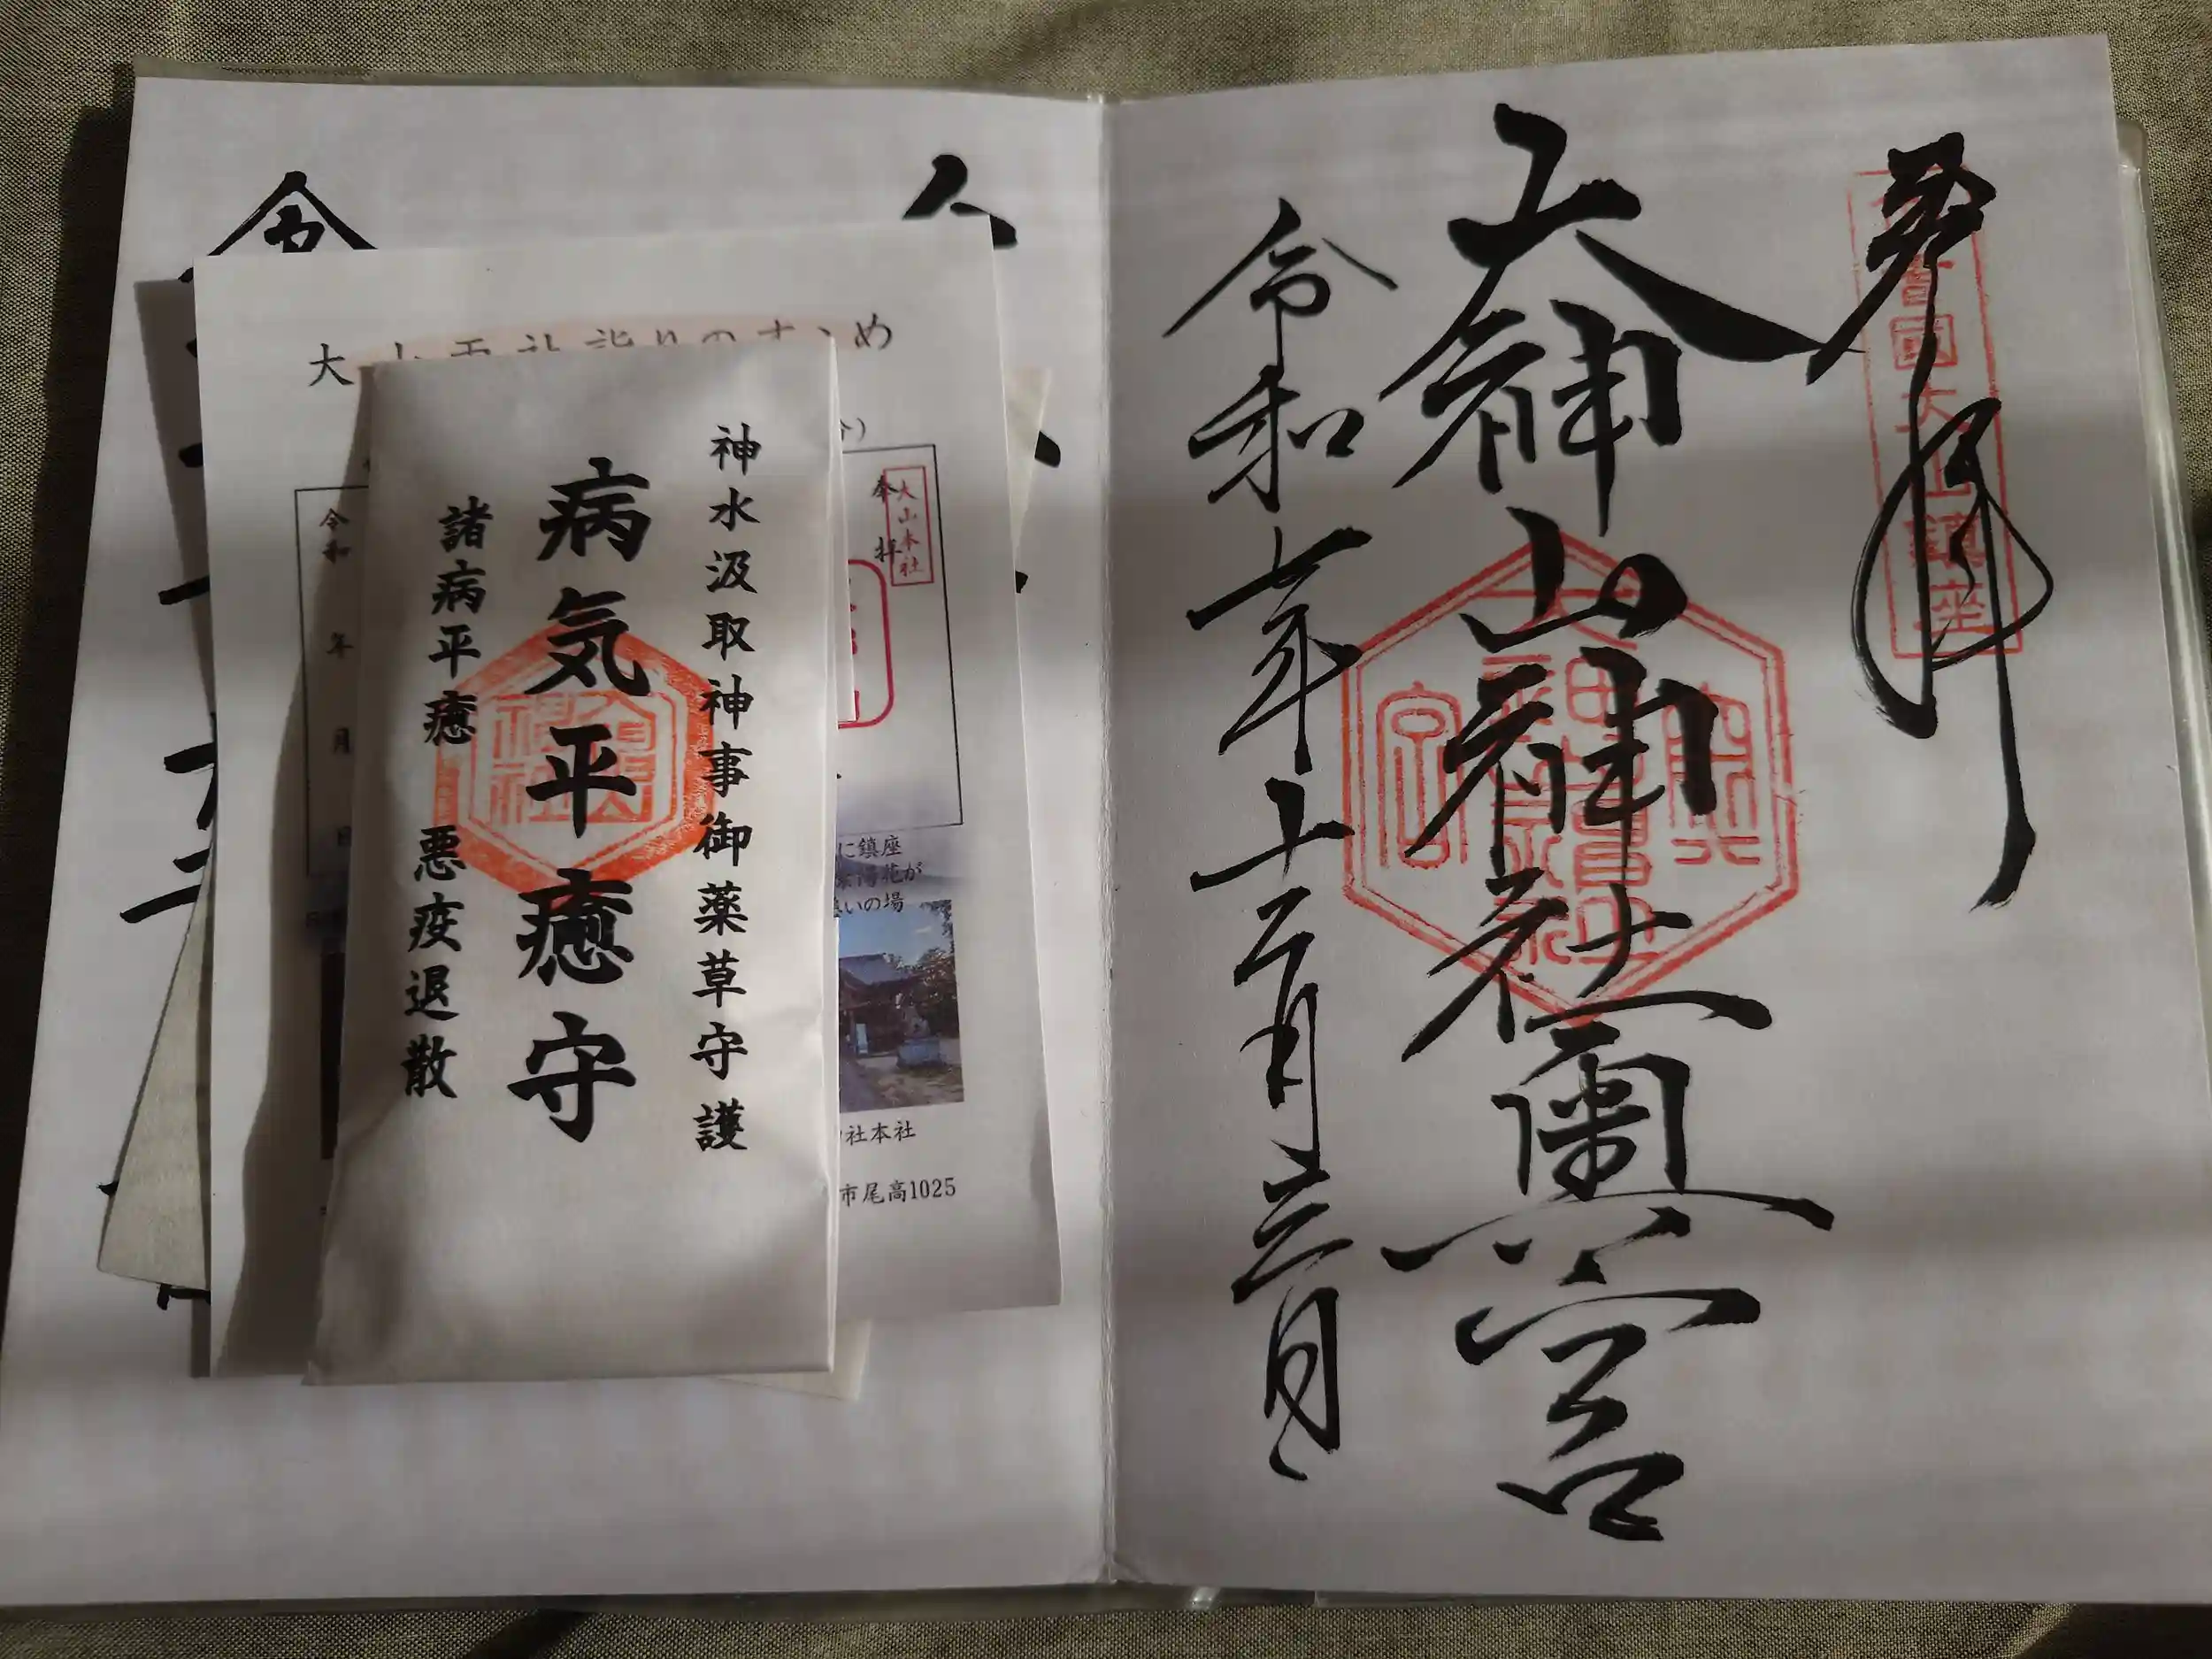 奉拝
耆國大山鎮座
大神山神社奥宮
令和七年十二月三日
令
大
詣りのすゝめ
奉拝
大山本社
令和 年 月 日
に鎮座
陽花が
いの場
社本社
市尾高1025
神水汲取神事御薬草守護
病気平癒守
諸病平癒 悪疫退散